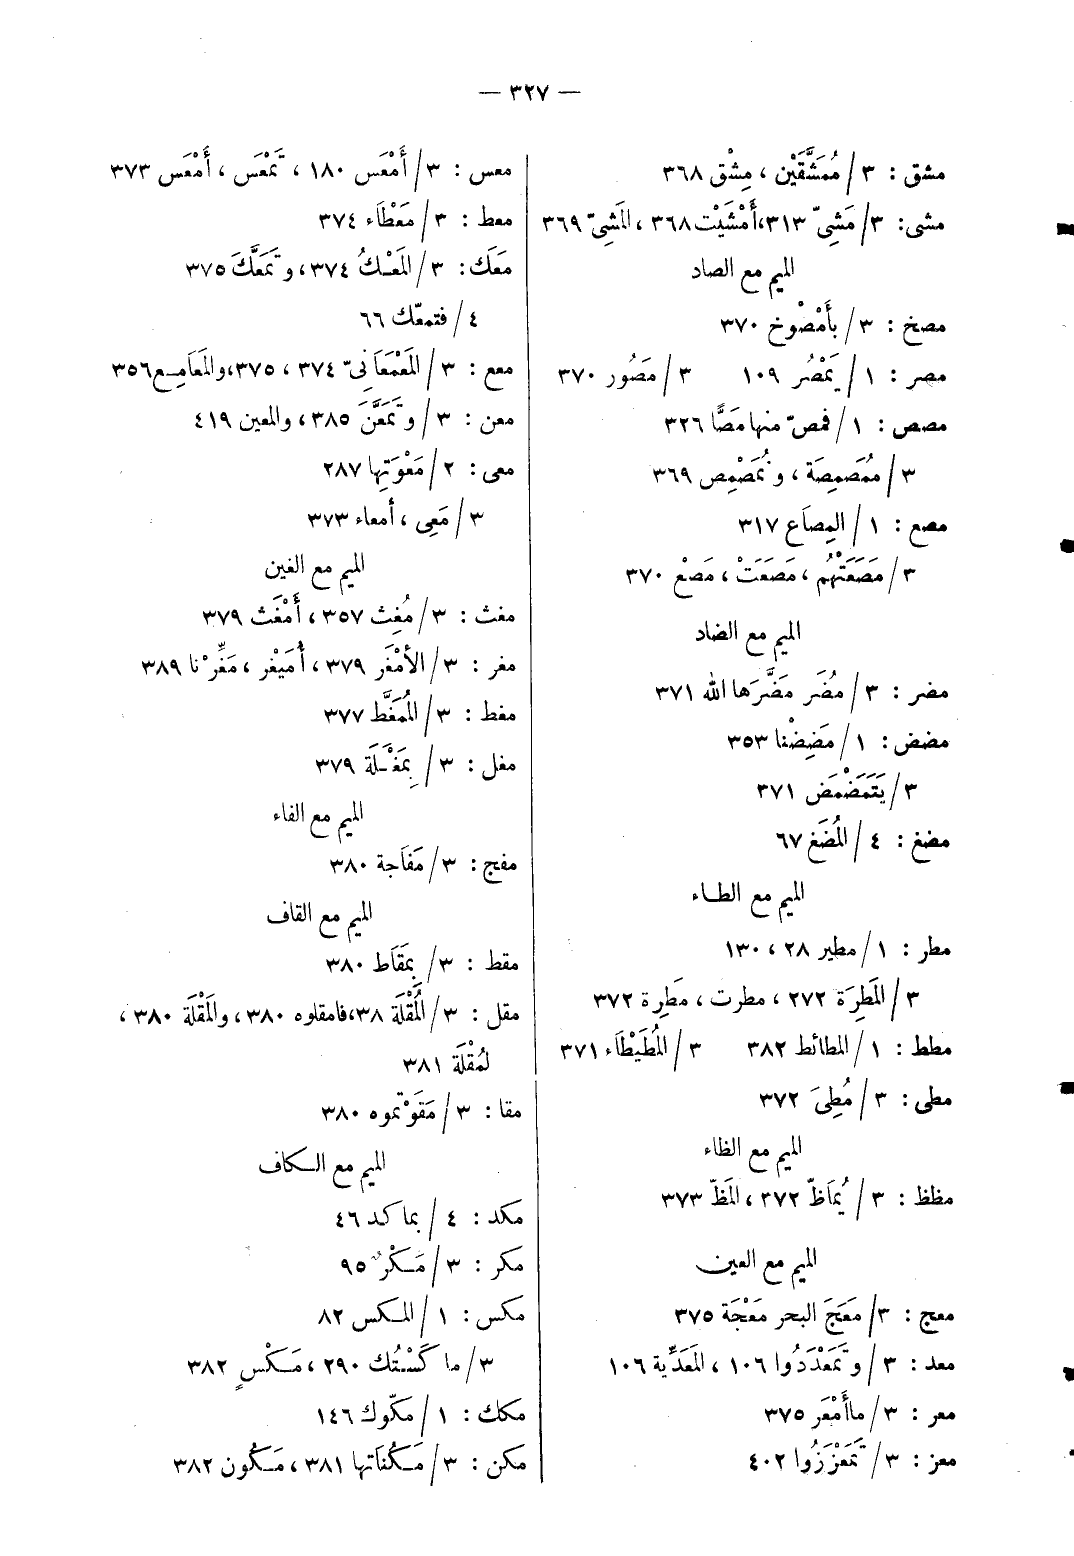 — ٣٢٧ —
مشق : ٣ / مُمَشَّقَيْن ، مِشْق ٣٦٨
مشى: ٣/ مَشِيّ ٣١٣،أَمْشَيْت ٣٦٨ ، المَشِيّ ٣٦٩
الميم مع الصاد
مصخ : ٣ / بأُمْصُوخ ٣٧٠
مصر : ١ / يَمْصُر ١٠٩ ٣ / مَصُور ٣٧٠
مصص : ١ / فمصّ منها مَصًّا ٣٢٦
٣ / مُمَصمِصَة ، و نُمَصْمِص ٣٦٩
مصع : ١ / المِصاَع ٣١٧
٣ / مَصَعَتْهُم ، مَصَعَتْ ، مَصْع ٣٧٠
الميم مع الضاد
مضر : ٣ / مُضَر مَضَّرَها الله ٣٧١
مضض : ١ / مَضِضْنا ٣٥٣
٣ / يَتَمَضْمَض ٣٧١
مضغ : ٤ / المُضَغ ٦٧
الميم مع الطـاء
مطر : ١ / مطير ٢٨ ، ١٣٠
٣ / المَطِرَة ٢٧٢ ، مطرت ، مَطِرة ٣٧٢
مطط : ١ / المطائط ٣٨٢ ٣ / المُطَيْطَاء ٣٧١
مطى : ٣ / مُطِىَ ٣٧٢
الميم مع الظاء
مظظ : ٣ / يُمَاظّ ٢٧٢ ، المَظّ ٣٧٣
الميم مع العين
معج : ٣/ مَعَجَ البحر مَعْجَة ٣٧٥
معد : ٣ / وتَمَعْدَدُوا ١٠٦ ، المَعَدِّية ١٠٦
معر : ٣ / ماأَمْعَر ٣٧٥
معز : ٣ / تَمَعْزَزُوا ٤٠٢
معس : ٣ / أَمْعَس ١٨٠ ، تَمْعَس ، أَمْعَس ٣٧٣
معط : ٣ / مَعْطَاء ٣٧٤
مَعَك: ٣ / المَعْـكُ ٣٧٤، و تَمَعَّكَ ٣٧٥
٤ / فتمعّك ٦٦
معع : ٣ / المَعْمَعَانِيّ ٣٧٤ ، ٣٧٥،والمَعَامِـع٣٥٦
معن : ٣ / وتَمَعَّنَ ٣٨٥، والمعين ٤١٩
معى : ٢ / مَعْوَتِها ٢٨٧
٣ / مَعِى ، أمعاء ٣٧٣
الميم مع الغين
مغث : ٣ / مُغِث ٣٥٧ ، أَمْغَث ٣٧٩
مغر : ٣ / الأَمْغَر ٣٧٩ ، أُمَيْغِر ، مَغِّرْنا ٣٨٩
مغط : ٣ / المُمَغَّط ٣٧٧
مغل : ٣ / بِمَغْـلَة ٣٧٩
الميم مع الفاء
مفج : ٣ / مَفَاجة ٣٨٠
الميم مع القاف
مقط : ٣ / بِمَقَاط ٣٨٠
مقل : ٣ / المُقْلَة ٣٨،فامقلوه ٣٨٠ ، والمَقْلَة ٣٨٠ ،
لمُقْلَة ٣٨١
مقا : ٣ / مَقَوْتموه ٣٨٠
الميم مع الـكاف
مكد : ٤ / بماكد ٤٦
مكر : ٣ / مَـكْر ٩٥
مكس : ١ / المـكس ٨٢
٣ / ما كَسْتُك ٢٩٠ ، مَـكْسٍ ٣٨٢
مكك : ١ / مَكّوك ١٤٦
مكن : ٣ / مَـكُنَاتها ٣٨١ ، مَـكُون ٣٨٢